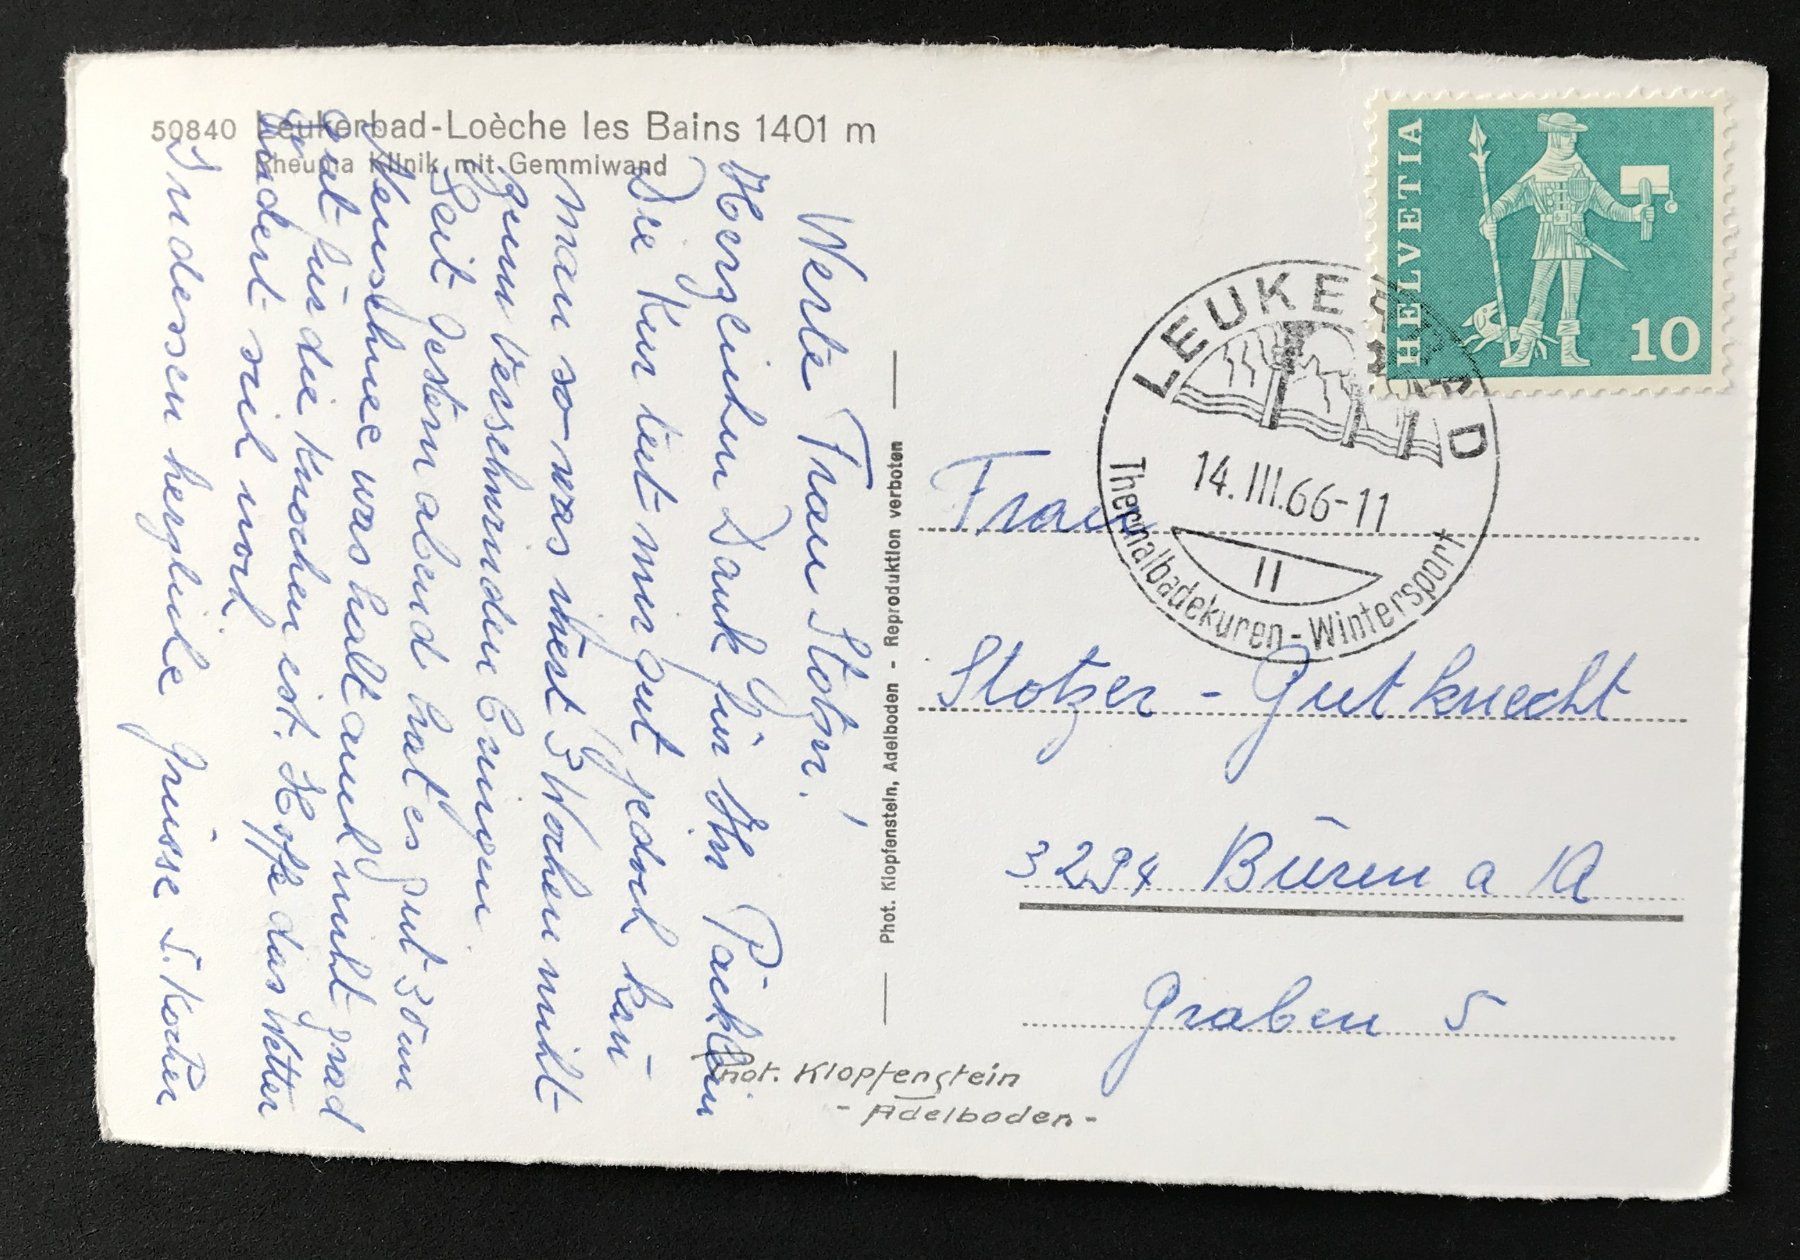 50840 Leukerbad-Loèche les Bains 1401 m
Rheuma Klinik mit Gemmiwand
Werte Frau Stotzer!
Herzlichen Dank für Ihr Päcklein
Die Kur tut mir gut jedoch kan
man so was itest 3 Wochen nicht
zum Verschwinden bringen.
Seit gestern abend hat es gut 30 cm
Neuschnee was halt auch nicht grad
gut für die Knochen ist. Hoffe das Wetter
ändert sich noch
Indessen herzliche Grüsse S. Kocher
Phot. Klopfenstein, Adelboden - Reproduktion verboten
Phot. Klopfenstein
- Adelboden -
HELVETIA
10
LEUKERBAD
14.III.66-11
II
Thermalbadekuren - Wintersport
Frau
Stotzer - Gutknecht
3294 Büren a A
Graben 5